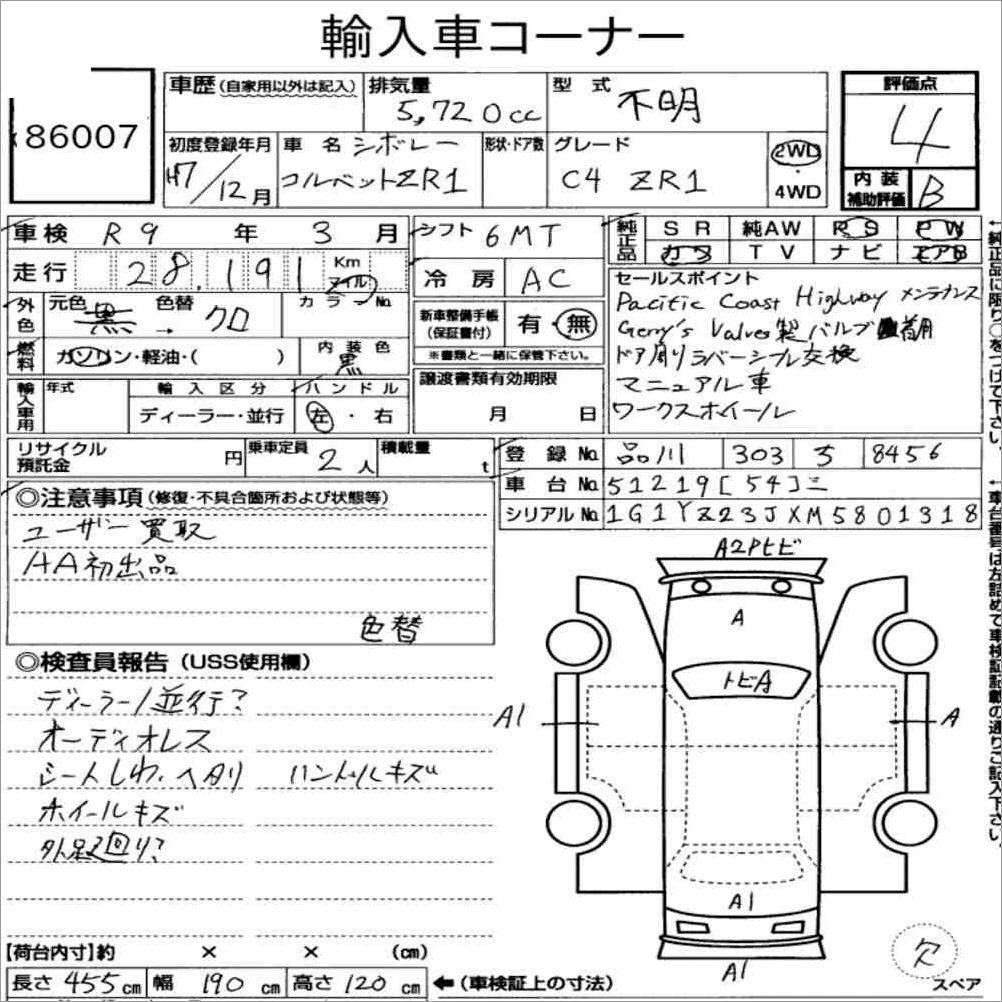 輸入車コーナー
86007
車歴 (自家用以外は記入) 排気量 5,720cc 型式 不明
評価点 4
初度登録年月 H7/12月 車名 シボレー コルベットZR1 形状・ドア数 グレード C4 ZR1 2WD 4WD
内装補助評価 B
車検 R9年 3月 シフト 6MT 純正品 SR 純AW PS PW
カワ TV ナビ エアB
走行 28,191 Km マイル 冷房 AC
外色 元色 黒 → 色替 クロ カラーNo
新車整備手帳 (保証書付) 有・無
※書類と一緒に保管下さい。
燃料 ガソリン・軽油・( ) 内装色 黒
輸入車用 年式 輸入区分 ディーラー・並行 ハンドル 左・右
譲渡書類有効期限 月 日
セールスポイント
Pacific Coast Highway メンテナンス
Gerry's Valves製バルブ
ドア周りラバーシール交換
マニュアル車
ワークスホイール
リサイクル預託金 円 乗車定員 2人 積載量 t
登録No. 品川 303 8456
車台No. 51219[54]ニ
シリアルNo. 1G1YZ23JXM5801318
◎注意事項 (修復・不具合箇所および状態等)
ユーザー買取
AA初出品
色替
◎検査員報告 (USS使用欄)
ディーラー/並行?
オーディオレス
シートしわ、ヘタリ ハンドルキズ
ホイールキズ
外足廻り?
A2Pヒビ
A
トビA
A1
A
A1
A1
欠
スペア
【荷台内寸】約 × × (cm)
長さ 455 cm 幅 190 cm 高さ 120 cm ←(車検証上の寸法)
←純正品に限り○をつけて下さい。
←車台番号は左詰めで車検証記載の通りご記入下さい。